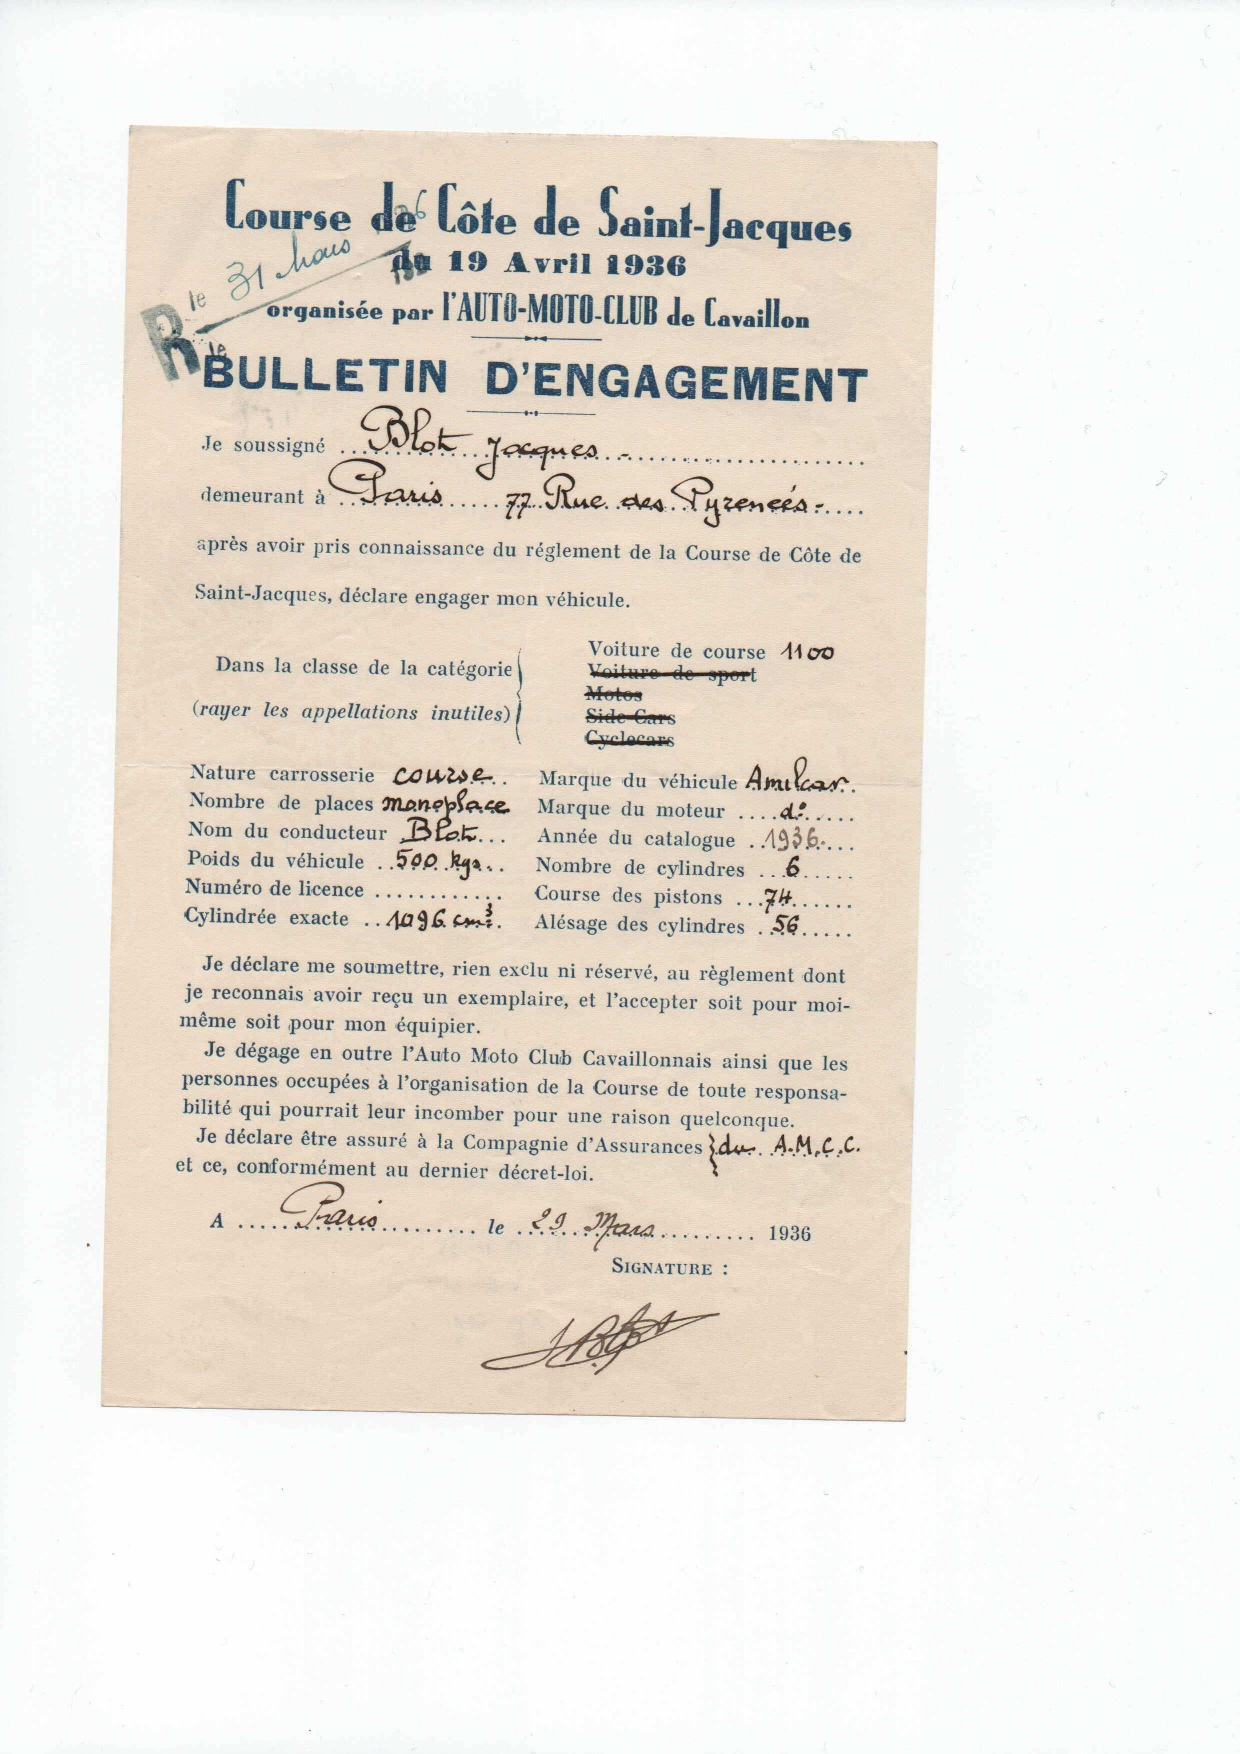 Course de Côte de Saint-Jacques
du 19 Avril 1936
R le 31 Mars 1936
le
organisée par l'AUTO-MOTO-CLUB de Cavaillon
BULLETIN D'ENGAGEMENT
Je soussigné Blot Jacques -
demeurant à Paris 77 Rue des Pyrenées -
après avoir pris connaissance du réglement de la Course de Côte de
Saint-Jacques, déclare engager mon véhicule.
Dans la classe de la catégorie
(rayer les appellations inutiles)
Voiture de course 1100
Voiture de sport
Motos
Side-Cars
Cyclecars
Nature carrosserie course
Nombre de places monoplace
Nom du conducteur Blot
Poids du véhicule 500 kgs
Numéro de licence
Cylindrée exacte 1096 cm³
Marque du véhicule Amilcar
Marque du moteur d°
Année du catalogue 1936
Nombre de cylindres 6
Course des pistons 74
Alésage des cylindres 56
Je déclare me soumettre, rien exclu ni réservé, au règlement dont
je reconnais avoir reçu un exemplaire, et l'accepter soit pour moi-
même soit pour mon équipier.
Je dégage en outre l'Auto Moto Club Cavaillonnais ainsi que les
personnes occupées à l'organisation de la Course de toute responsa-
bilité qui pourrait leur incomber pour une raison quelconque.
Je déclare être assuré à la Compagnie d'Assurances } du A.M.C.C.
et ce, conformément au dernier décret-loi.
A Paris le 29 Mars 1936
SIGNATURE :
J Blot